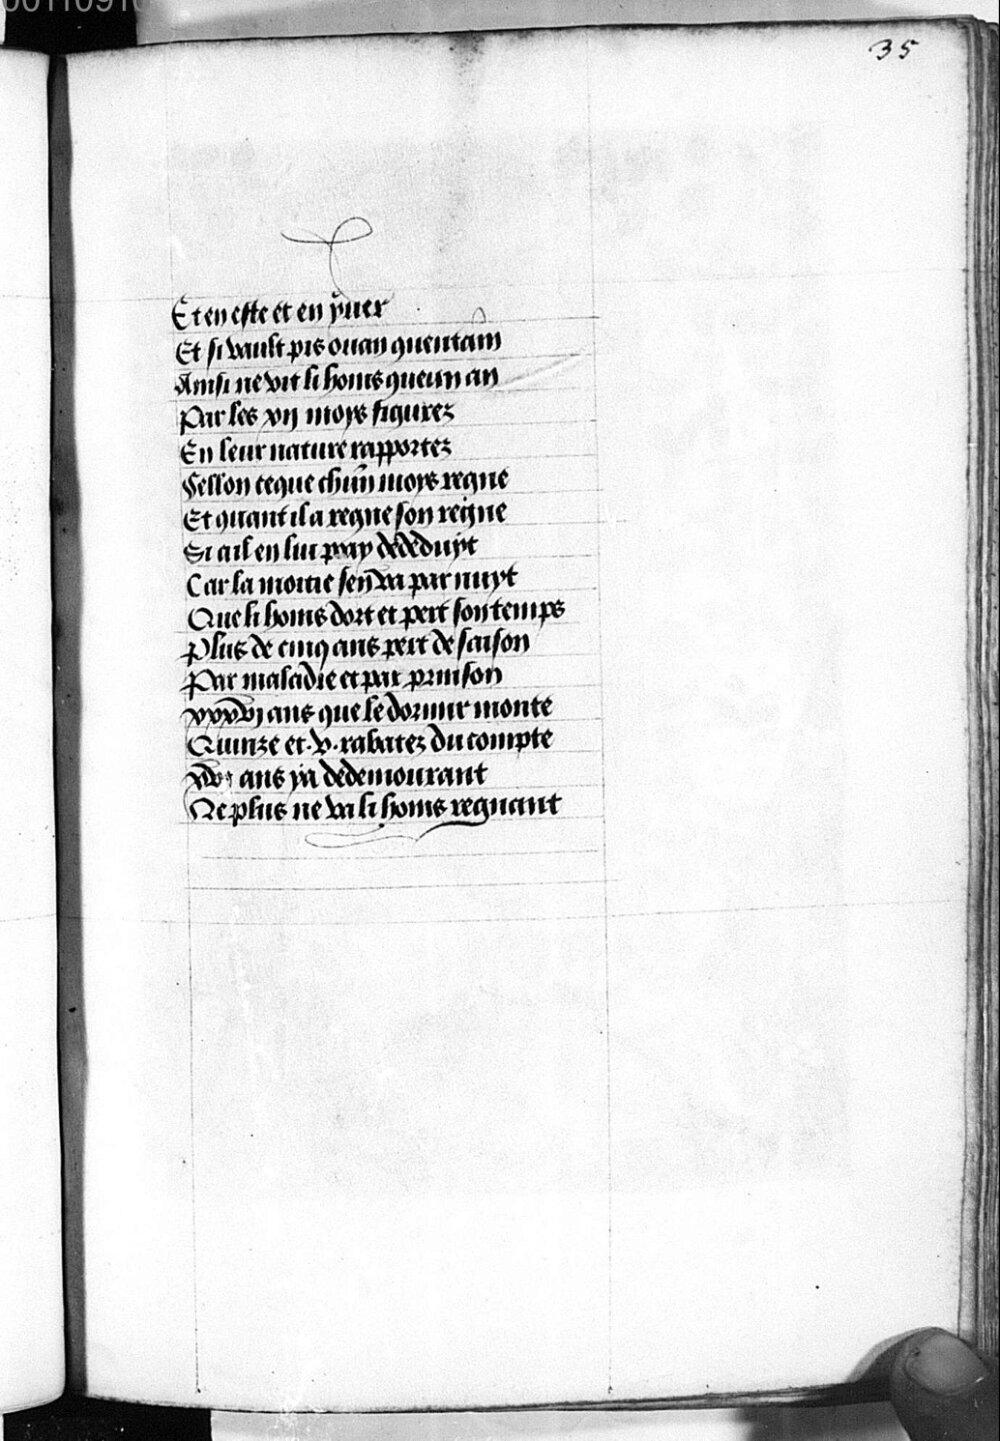 35
Et en este et en yver
Et si vault pis ouan quentam
Ainsi ne vit li homs que un an
Par les xij moys figurez
En leur nature rapportez
Sellon ce que chũn moys regne
Et quant il a regne son reigne
Si a il en lui pay de deduyt
Car la moitie sen va par nuyt
Que li homs dort et pert son temps
Plus de cinq ans pert de saison
Par maladie et par prinson
xxxvj ans que le dormir monte
Quinze et .v. rabatez du compte
ans ja de demourant
Ne plus ne va li homs regnant